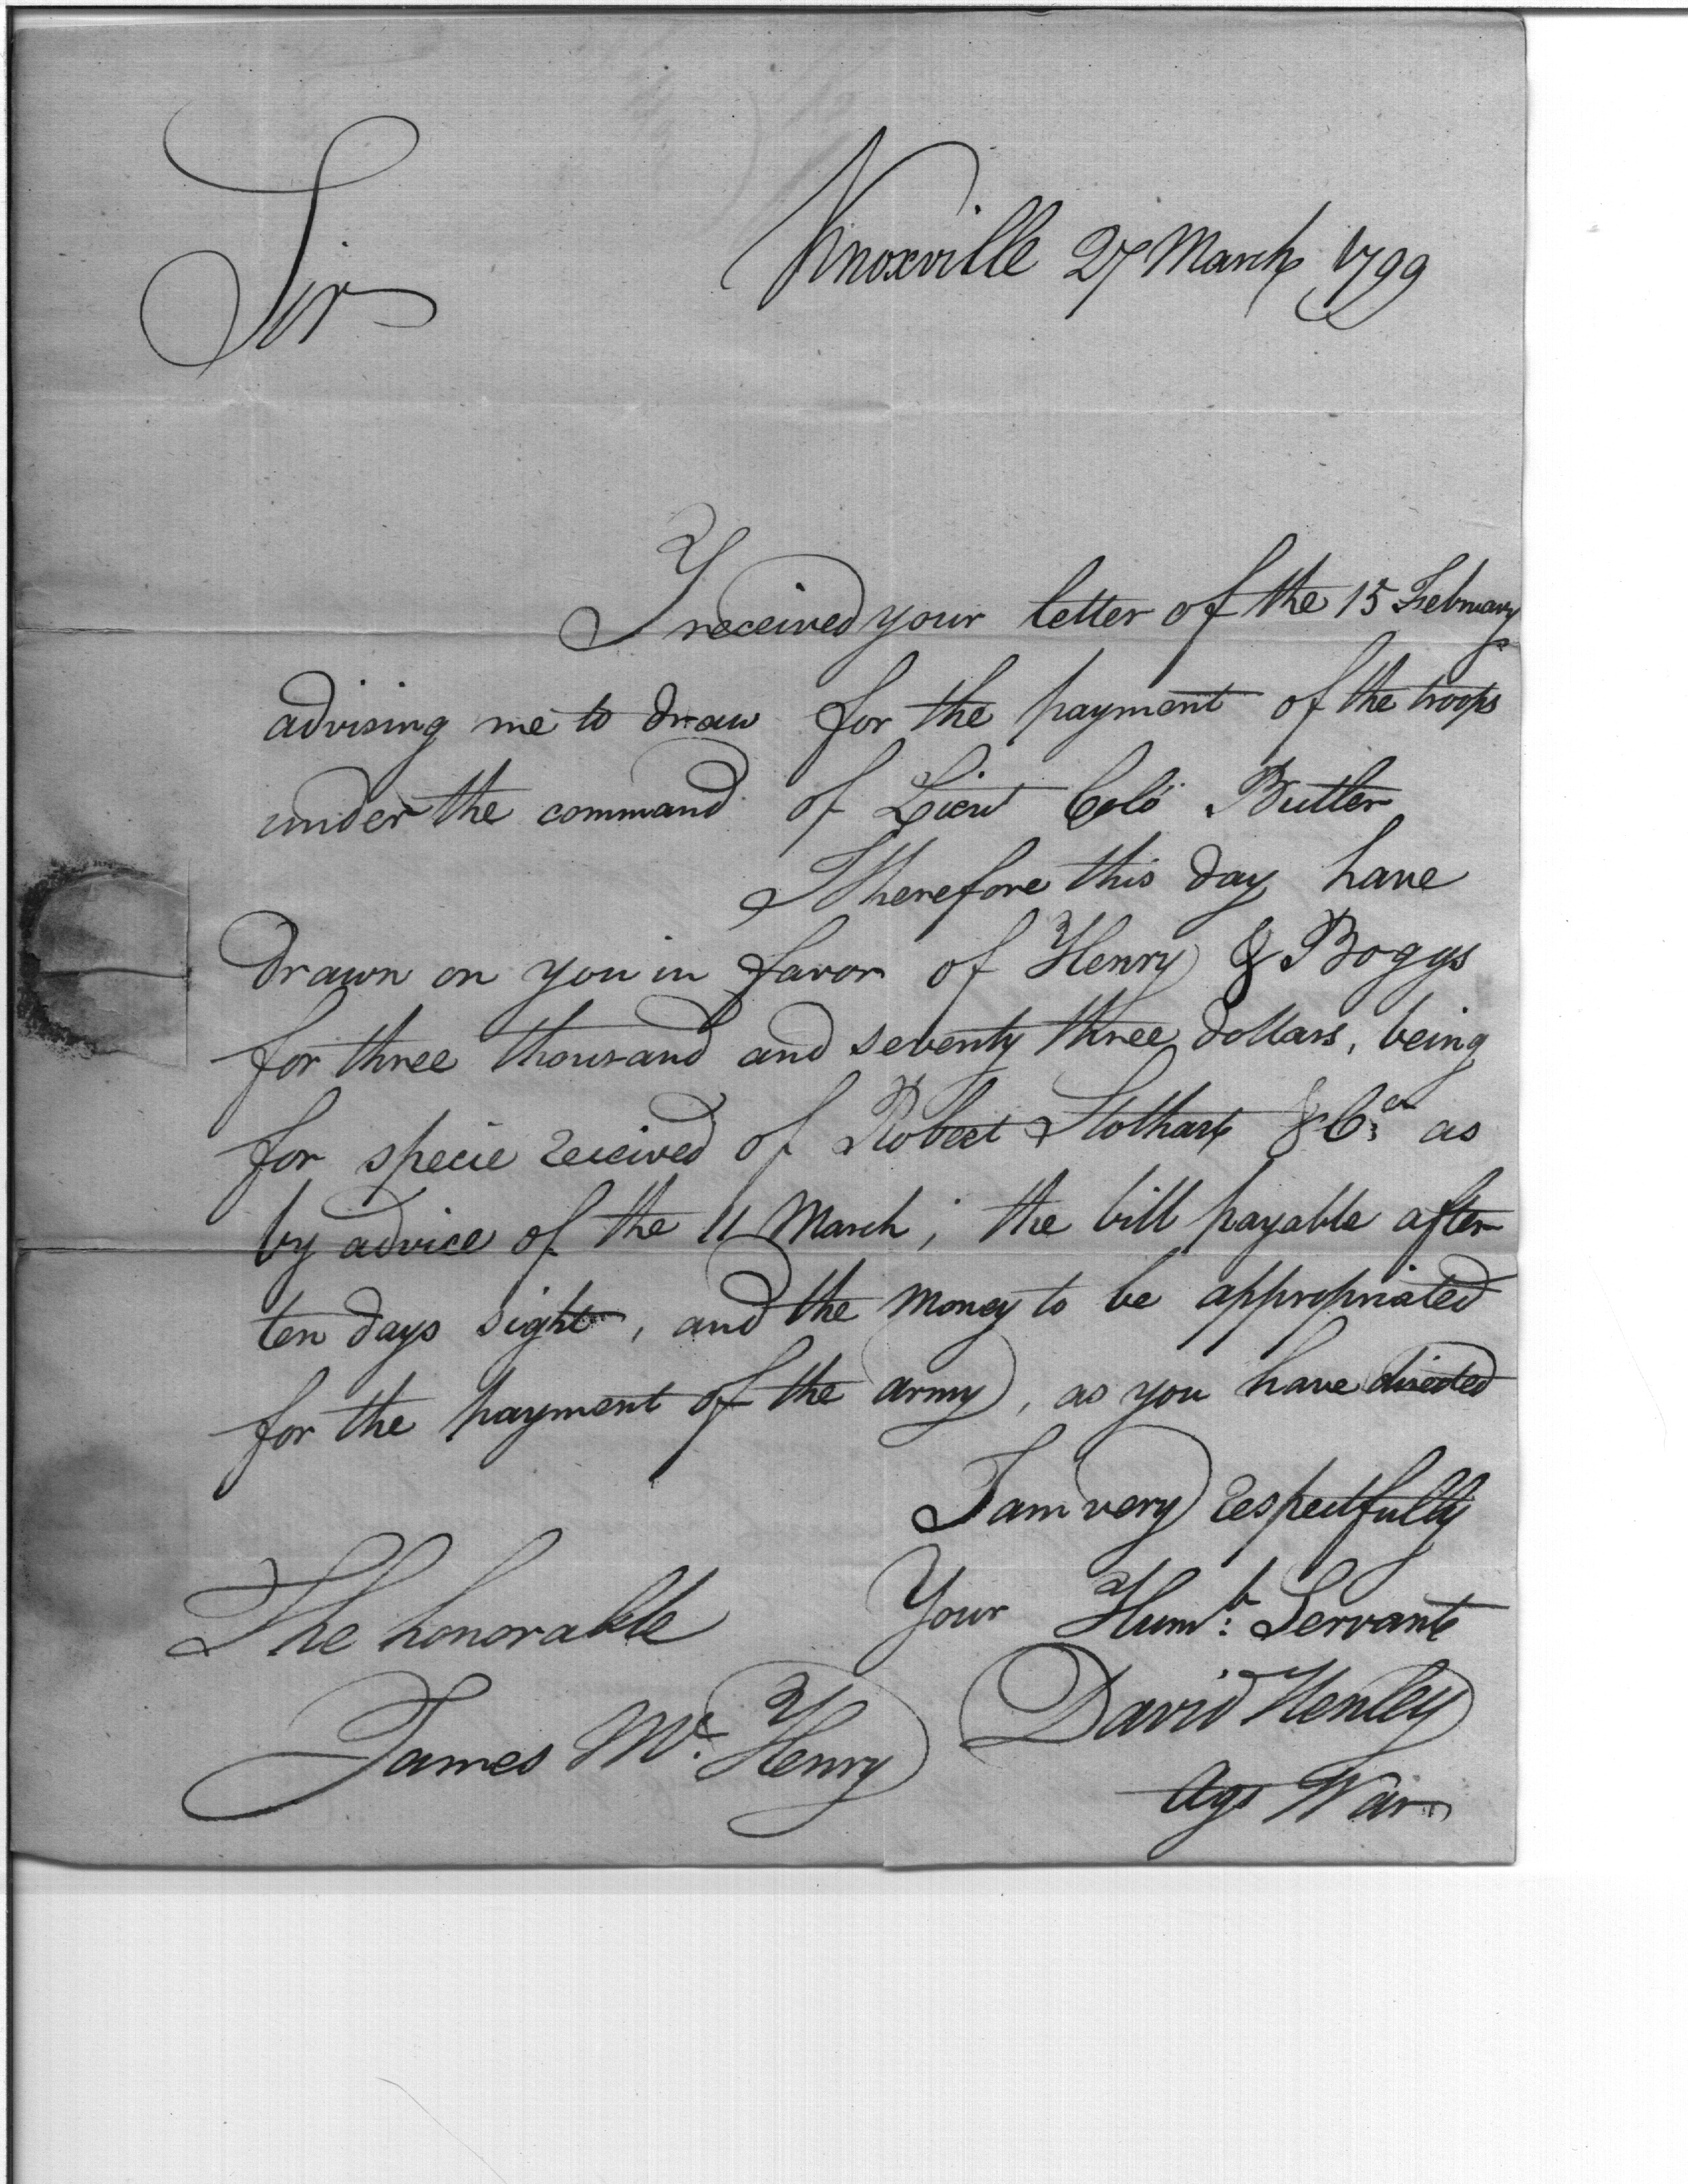 Sir
Knoxville 27 March 1799
I received your letter of the 15 February
advising me to draw for the payment of the troops
under the command of Lieut Colo Butler
I therefore this day have
drawn on you in favor of Henry & Boggs
for three thousand and seventy three dollars, being
for specie received of Robert Stothart & Co: as
by advice of the 11 March; the bill payable after
ten days sight, and the money to be appropriated
for the payment of the army, as you have directed
I am very respectfully
Your Humb: Servant
David Henley
Agt War
The honorable
James McHenry